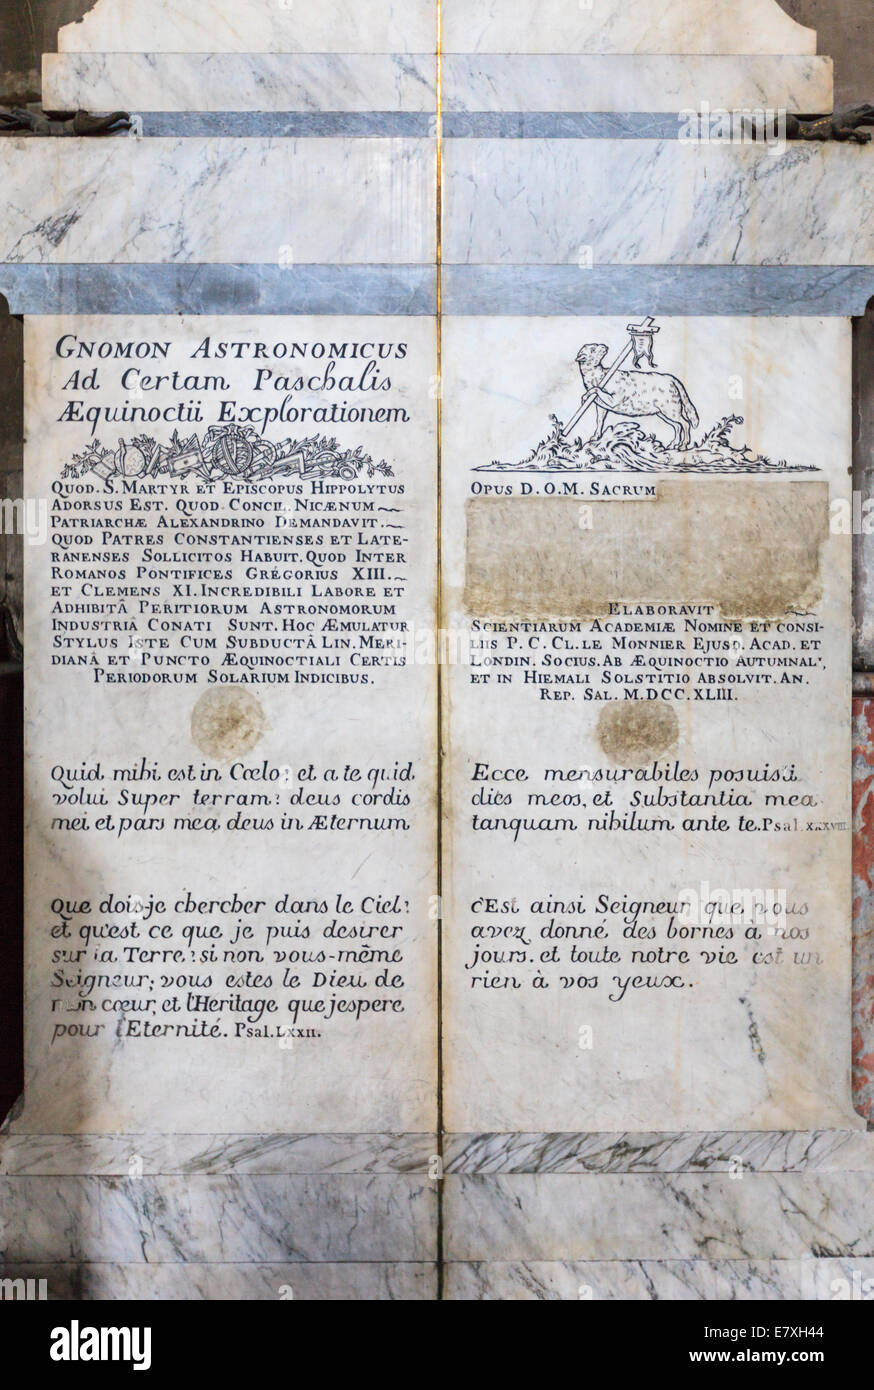 GNOMON ASTRONOMICUS
Ad Certam Paschalis
Æquinoctii Explorationem
QUOD. S. MARTYR ET EPISCOPUS HIPPOLYTUS
ADORSUS EST. QUOD CONCIL. NICÆNUM
PATRIARCHÆ ALEXANDRINO DEMANDAVIT.
QUOD PATRES CONSTANTIENSES ET LATE-
RANENSES SOLLICITOS HABUIT. QUOD INTER
ROMANOS PONTIFICES GRÉGORIUS XIII.
ET CLEMENS XI. INCREDIBILI LABORE ET
ADHIBITÂ PERITIORUM ASTRONOMORUM
INDUSTRIÂ CONATI SUNT. HOC ÆMULATUR
STYLUS ISTE CUM SUBDUCTÂ LIN. MERI-
DIANÂ ET PUNCTO ÆQUINOCTIALI CERTIS
PERIODORUM SOLARIUM INDICIBUS.
Quid mihi est in Cœlo: et a te quid
volui Super terram: deus cordis
mei et pars mea deus in Æternum
Que dois-je chercher dans le Ciel:
et qu'est ce que je puis desirer
sur la Terre: si non vous-même
Seigneur; vous estes le Dieu de
mon cœur, et l'Heritage que j'espere
pour l'Eternité. Psal. LXXII.
OPUS D. O. M. SACRUM
ELABORAVIT
SCIENTIARUM ACADEMIÆ NOMINE ET CONSI-
LIIS P. C. CL. LE MONNIER EJUSD. ACAD. ET
LONDIN. SOCIUS. AB ÆQUINOCTIO AUTUMNALI,
ET IN HIEMALI SOLSTITIO ABSOLVIT. AN.
REP. SAL. M.DCC.XLIII.
Ecce mensurabiles posuisti
dies meos, et Substantia mea
tanquam nihilum ante te. Psal. XXXVIII.
c'Est ainsi Seigneur que vous
avez donné des bornes à nos
jours. et toute notre vie est un
rien à vos yeux.
alamy
E7XH44
www.alamy.com